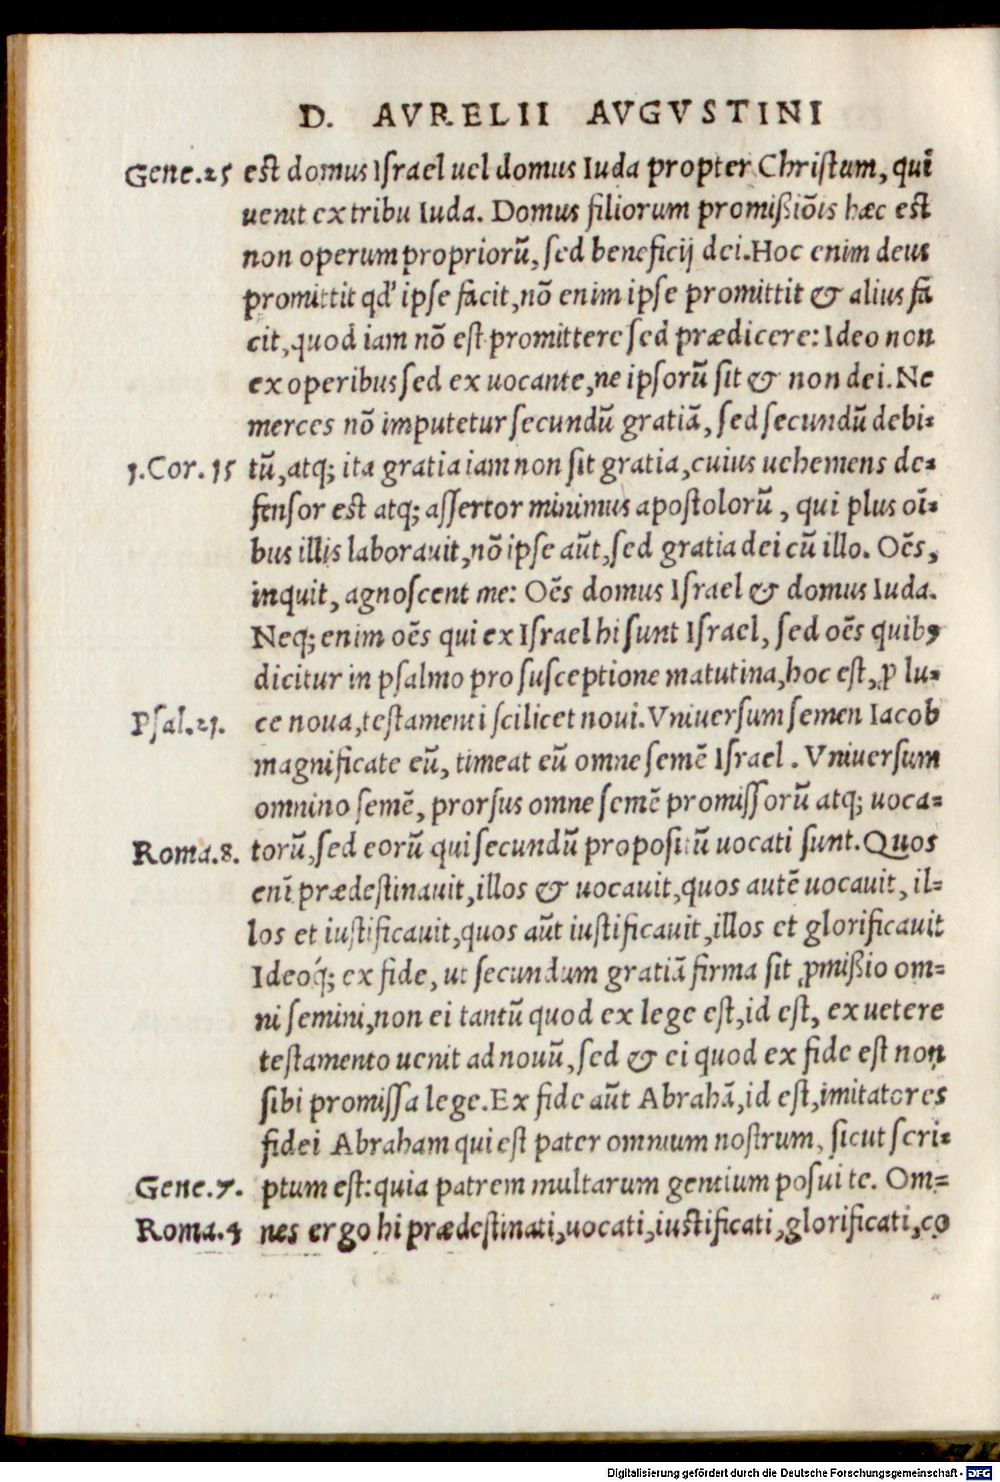 D. AVRELII AVGVSTINI
Gene.25 est domus Israel uel domus Iuda propter Christum, qui
uenit ex tribu Iuda. Domus filiorum promißiōis hæc est
non operum propriorū, sed beneficij dei. Hoc enim deus
promittit qd' ipse facit, nō enim ipse promittit & alius fa
cit, quod iam nō est promittere sed prædicere: Ideo non
ex operibus sed ex uocante, ne ipsorū sit & non dei. Ne
merces nō imputetur secundū gratiā, sed secundū debi-
1.Cor. 15 tū, atq; ita gratia iam non sit gratia, cuius uehemens de-
fensor est atq; assertor minimus apostolorū, qui plus oī-
bus illis laborauit, nō ipse aūt, sed gratia dei cū illo. Oēs,
inquit, agnoscent me: Oēs domus Israel & domus Iuda.
Neq; enim oēs qui ex Israel hi sunt Israel, sed oēs quibꝰ
dicitur in psalmo pro susceptione matutina, hoc est, ꝓ lu-
Psal.21. ce noua, testamenti scilicet noui. Vniuersum semen Iacob
magnificate eū, timeat eū omne semē Israel. Vniuersum
omnino semē, prorsus omne semē promissorū atq; uoca-
Roma.8. torū, sed eorū qui secundū propositū uocati sunt. Quos
enī prædestinauit, illos & uocauit, quos autē uocauit, il-
los et iustificauit, quos aūt iustificauit, illos et glorificauit
Ideoq́; ex fide, ut secundum gratiā firma sit ꝓmißio om-
ni semini, non ei tantū quod ex lege est, id est, ex uetere
testamento uenit ad nouū, sed & ei quod ex fide est non
sibi promissa lege. Ex fide aūt Abrahā, id est, imitatores
fidei Abraham qui est pater omnium nostrum, sicut scri-
Gene.7. ptum est: quia patrem multarum gentium posui te. Om-
Roma.4 nes ergo hi prædestinati, uocati, iustificati, glorificati, co
Digitalisierung gefördert durch die Deutsche Forschungsgemeinschaft - DFG